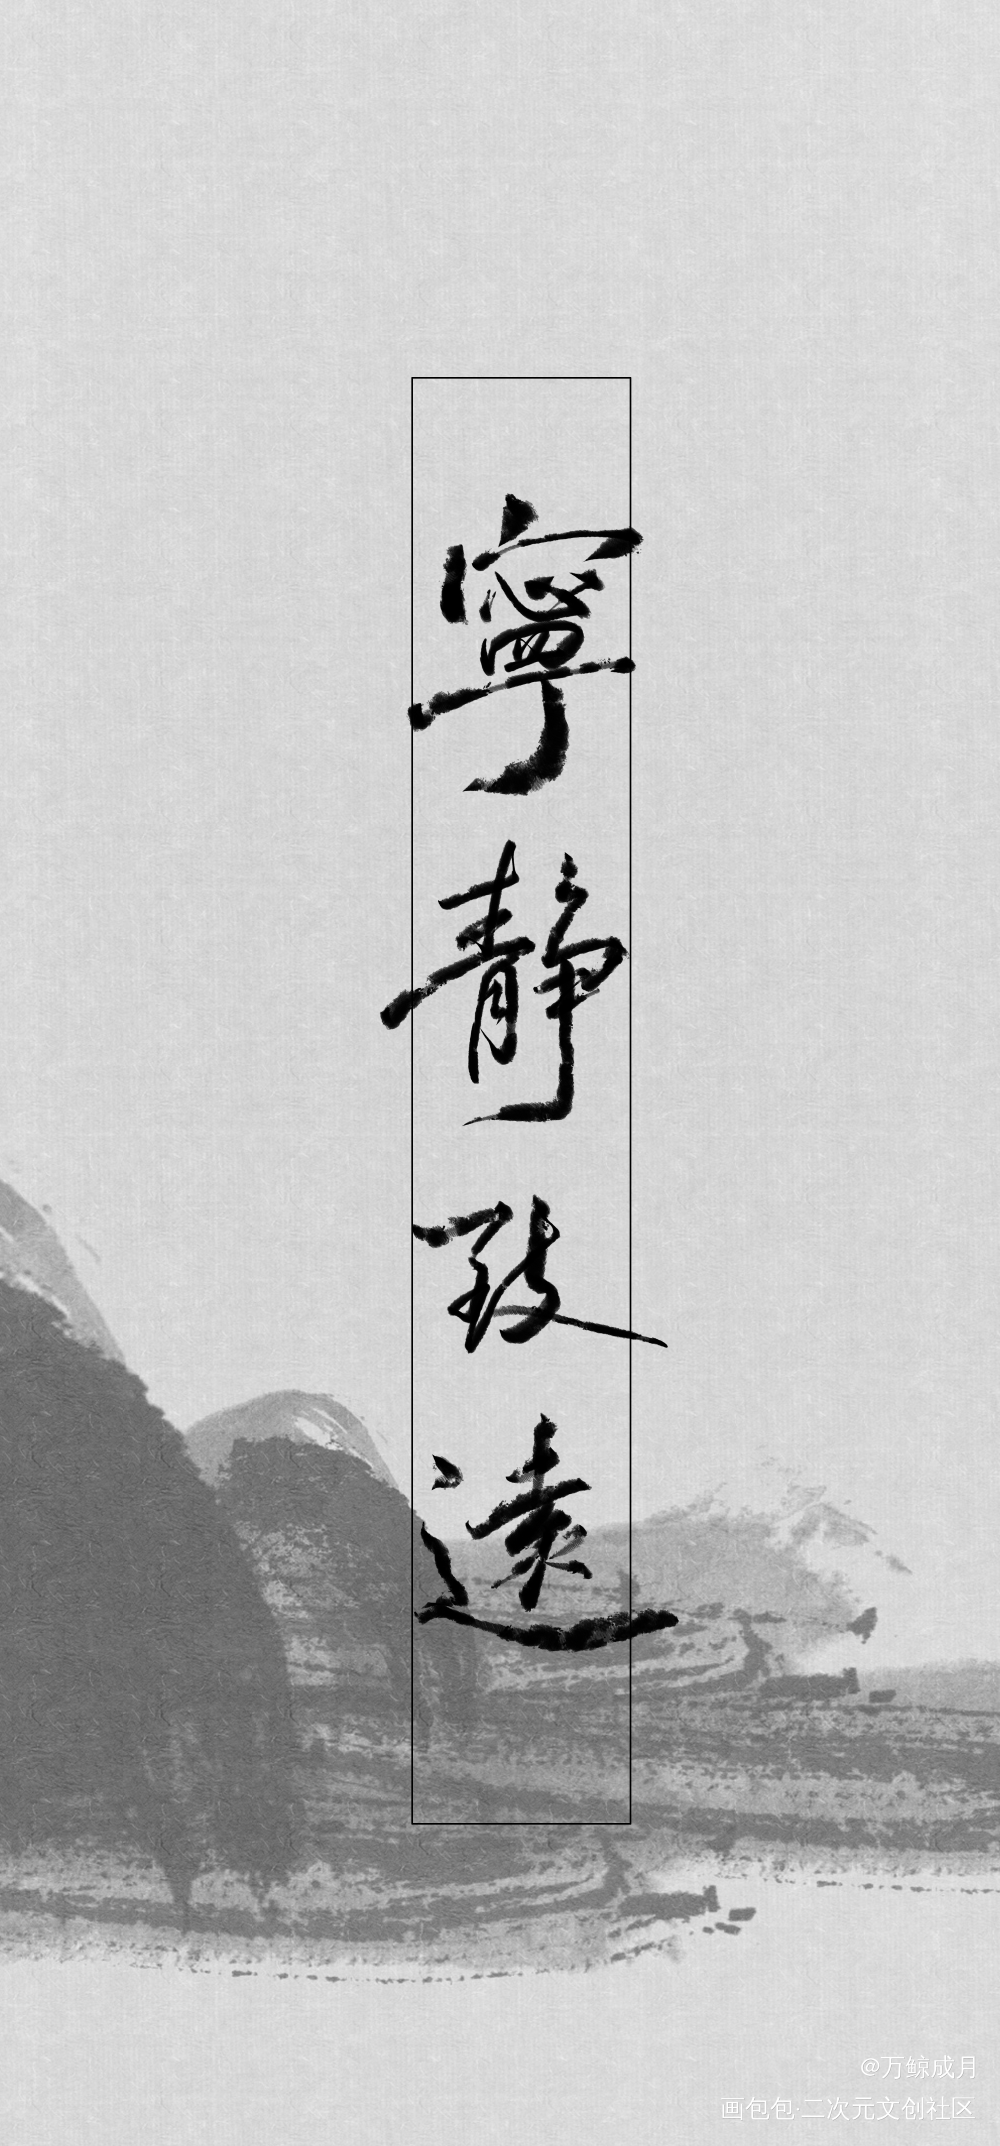 寧靜致遠
@万鲸成月
画包包·二次元文创社区